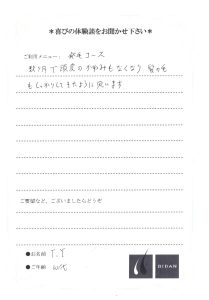 ＊喜びの体験談をお聞かせ下さい＊
ご利用メニュー: 発毛コース
数ヶ月で頭皮の かゆみもなくなり 髪の毛
もしっかりしてきたように思います
ご要望など、ございましたらどうぞ
●お名前 T.Y
●ご年齢 代
BIDAN